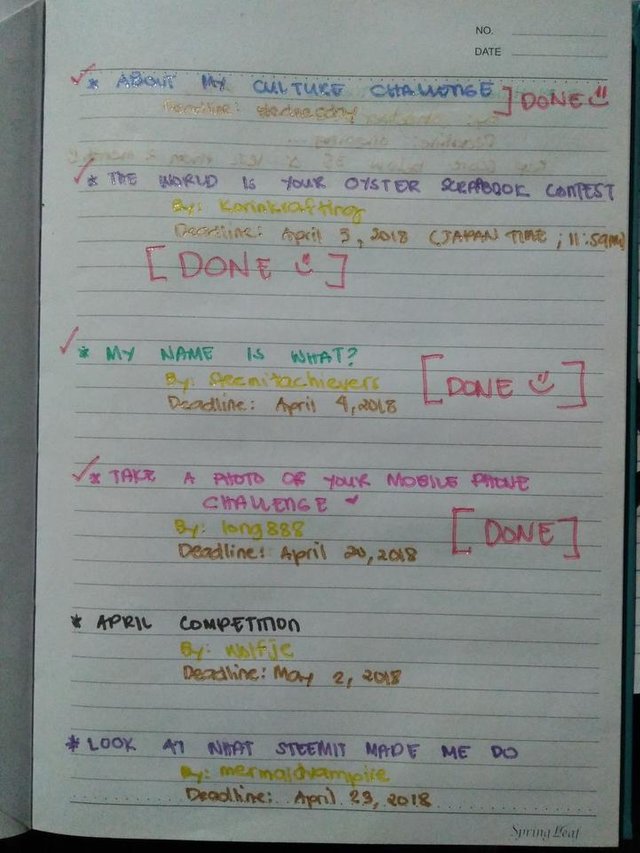 NO.
DATE
✓* ABOUT MY CULTURE CHALLENGE ] DONE
Deadline: Wednesday
✓* THE WORLD IS YOUR OYSTER SCRAPBOOK CONTEST
By: Karinkrafting
Deadline: April 3, 2018 (JAPAN TIME ; 11:59PM)
[ DONE ]
✓* MY NAME IS WHAT?
By: Steemitachievers
[ DONE ]
Deadline: April 4, 2018
✓* TAKE A PHOTO OF YOUR MOBILE PHONE
CHALLENGE
By: long888
[ DONE ]
Deadline: April 20, 2018
* APRIL COMPETITION
By: wolfje
Deadline: May 2, 2018
* LOOK AT WHAT STEEMIT MADE ME DO
By: mermaidvampire
Deadline: April 23, 2018
Spring Leaf